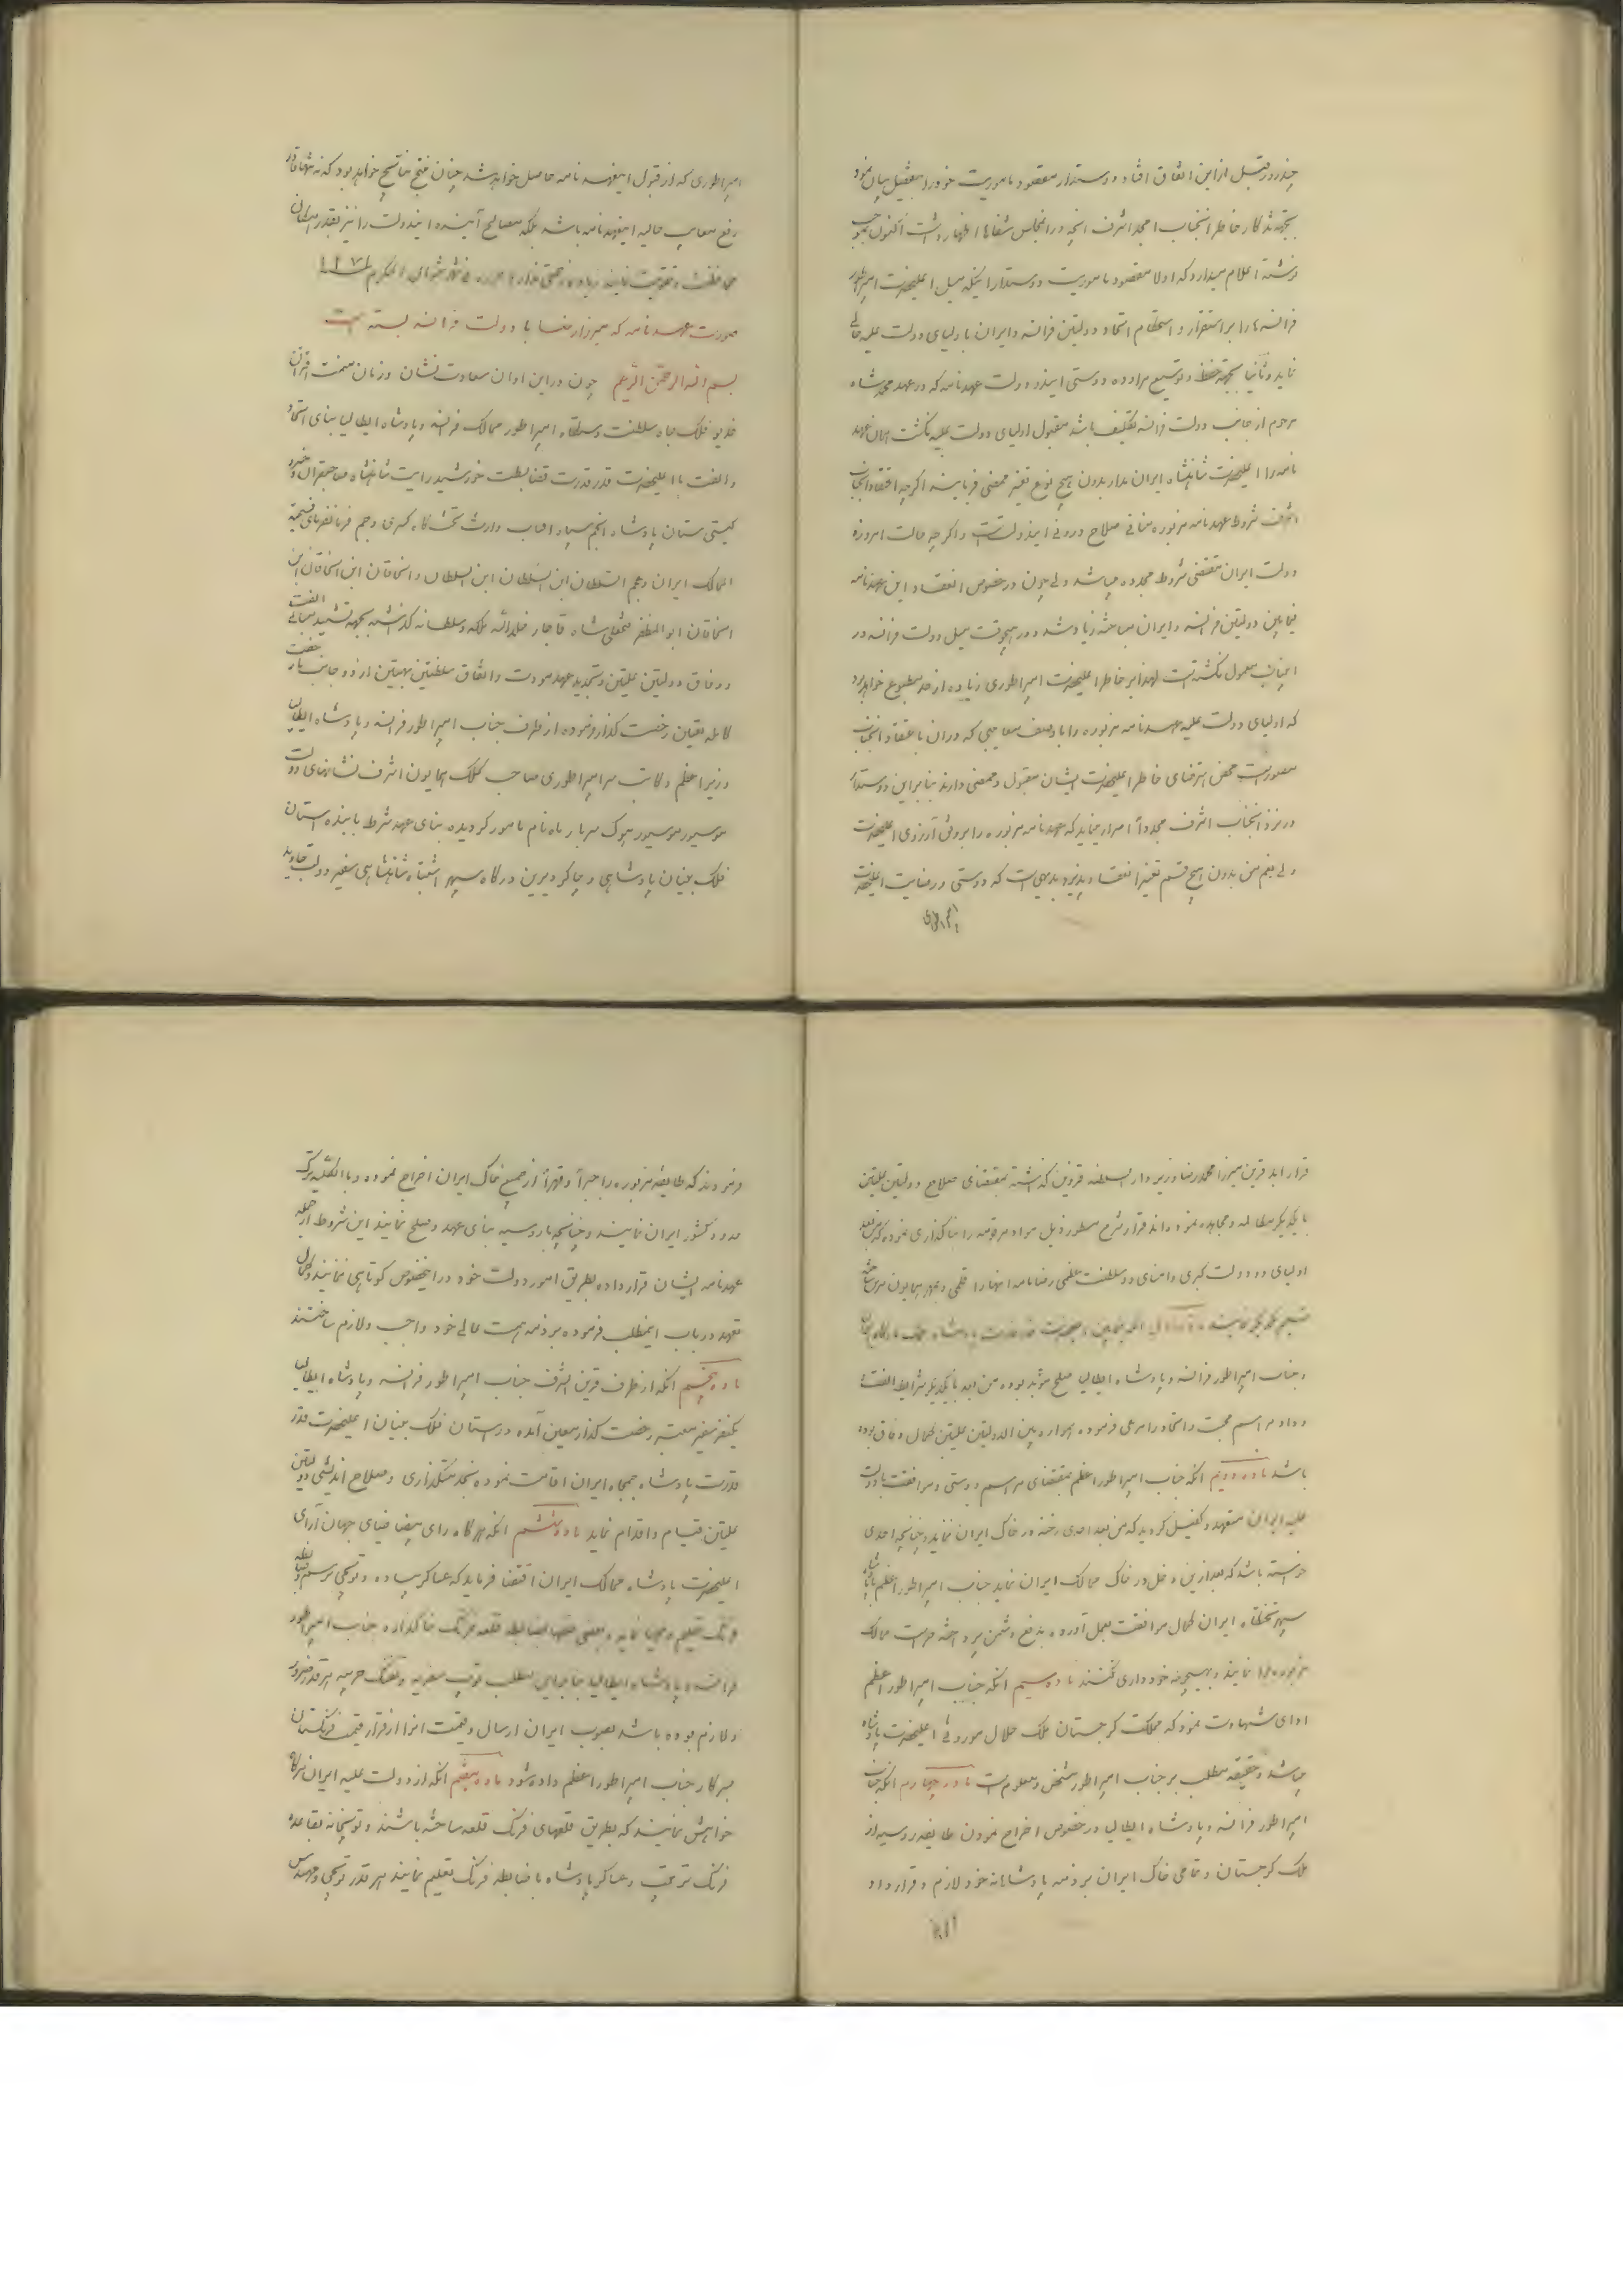 چند روز قبل از این اتفاق افتاد و دوستدار مقصود ماموریت خود را بتفصیل بیان نمود
بجهة تذکار خاطر آنجناب امجد اشرف آنچه در آنمجلس شفاها اظهار داشت اکنون بموجب
نوشته اعلام میدارد که اولا مقصود ماموریت دوستدار اینکه میل اعلیحضرت امپراطور
فرانسه را بر استقرار و استحکام اتحاد دولتین فرانسه و ایران باولیای دولت علیه حالی
نماید و ثانیا بجهة حفظ و توسیع مراوده و دوستی ایندو دولت عهدنامه که در عهد محمد شاه
مرحوم از جانب دولت فرانسه تکلیف باشد مقبول اولیای دولت علیه نگشت همان عهد
نامه را اعلیحضرت شاهنشاه ایران مدار بدون هیچ نوع تغییر ممضی فرمایند اگرچه باعتقاد آنجناب
اشرف شروط عهدنامه مزبوره منافی صلاح درونی ایندولتست و اگرچه حالت امروزه
دولت ایران مقتضی شروط مجدده میباشد ولی چون در خصوص انعقاد این عهدنامه
فیمابین دولتین فرانسه و ایران مباحثه زیاد شد و در هیچوقت میل دولت فرانسه در
اینباب معمول نگشته است لهذا بر خاطر اعلیحضرت امپراطوری زیاده از حد مطبوع خواهد بود
که اولیای دولت علیه عهدنامه مزبوره را با وصف معایبی که در آن باعتقاد آنجناب
متصور است محض استرضای خاطر اعلیحضرت ایشان مقبول و ممضی دارند بنابراین دوستدار
در نزد آنجناب اشرف مجدداً اصرار مینماید که عهدنامه مزبوره را بر وفق آرزوی اعلیحضرت
ولی نعم من بدون هیچ قسم تغییر انعقاد پذیرد بدیهی است که دوستی و رضایت اعلیحضرت
امپراطوری
امپراطوری که از قبول اینعهدنامه حاصل خواهد شد چنان منتج نتایج خواهد بود که نه تنها قادر
رفع معایب حالیه اینعهدنامه باشد بلکه مصالح آینده ایندولت را نیز بقدر امکان
محافظت و تقویت نماید زیاده زحمتی ندارد شهر شوال المکرم ۱۲۷۱
صورت عهدنامه که میرزا رضا با دولت فرانسه بسته است
بسم الله الرحمن الرحیم چون در این اوان سعادت نشان و زمان میمنت اقتران
خدیو فلک جاه سلطنت دستگاه امپراطور ممالک فرانسه و پادشاه ایطالیا بنای اتحاد
و الفت با اعلیحضرت قدر قدرت قضا بسطت خورشید رایت شاهنشاه صاحبقران و خسرو
گیتی ستان پادشاه انجم سپاه وارث تختگاه کسری و جم فرمانفرمای فسیحة
الممالک ایران و عجم السلطان ابن السلطان ابن السلطان و الخاقان ابن الخاقان ابن
الخاقان ابوالمظفر فتحعلی شاه قاجار خلدالله ملکه و سلطانه گذاشته بجهة تشیید مبانی الفت
و وفاق دولتین علیتین و تجدید عهد مودت و اتفاق سلطنتین بهیتین از دو جانب بار رخصت
کامله تعیین رخصت گذار فرموده از طرف جناب امپراطور فرانسه و پادشاه ایطالیا
وزیر اعظم و کاتب سر امپراطوری صاحب کلک همایون اشرف نشانهای دولت
موسیور موسیور هوک برنار ماره نام مامور گردیده بنای عهد شرط با بنده آستان
فلک بنیان پادشاهی و چاکر دیرین درگاه سپهر اشتباه شاهنشاهی سفیر دولت جاوید
قرار ابد قرین میرزا محمد رضا وزیر دارالسلطنه قزوین گذاشته بمقتضای صلاح دولتین علیتین
با یکدیگر مطالبه و مجاهده نموده اند قرار شرح مسطور ذیل مواد مرقومه را بنا گذاری نموده که من بعد
اولیای دو دولت کبری و امنای دو سلطنت عظمی رضا نامه آنها را قلمی و بمهر همایون مزین ساخته
تسلیم یکدیگر نمایند ماده اول آنکه فیمابین اعلیحضرت قدر قدرت پادشاه
و جناب امپراطور فرانسه و پادشاه ایطالیا صلح مؤبد بوده من بعد با یکدیگر شرایط الفت
و داد و مراسم محبت و اتحاد را مرعی فرموده همواره بین الدولتین علیتین کمال وفاق بوده
باشد ماده دویم آنکه جناب امپراطور اعظم بمقتضای مراسم دوستی و موافقت با دولت
علیه ایران متعهد و کفیل گردید که من بعد احدی رخنه در خاک ایران ننماید و چنانچه احدی
خواسته باشد که بعد از این دخل در خاک ممالک ایران نماید جناب امپراطور اعظم با پادشاه
سپهر تختگاه ایران کمال موافقت بعمل آورده بدفع دشمن پرداخته حراست ممالک
مزبوره را نمایند و بهیچوجه خودداری نکنند ماده سیم آنکه جناب امپراطور اعظم
ادای شهادت نمود که مملکت گرجستان ملک حلال موروثی اعلیحضرت پادشاه
میباشد و حقیقت مطلب بر جناب امپراطور مشخص و معلوم است ماده چهارم آنکه جناب
امپراطور فرانسه و پادشاه ایطالیا در خصوص اخراج نمودن طایفه روسیه از
ملک گرجستان و تمامی خاک ایران بر ذمه پادشاهانه خود لازم و قرار داد
فرمودند که طایفه مزبوره را جبراً و قهراً از جمیع خاک ایران اخراج نموده و بالکلیه ترک
حدود کشور ایران نمایند و چنانچه با روسیه بنای عهد و صلح نمایند این شروط از جمله
عهدنامه ایشان قرار داده بطریق امور دولت خود در اینخصوص کوتاهی ننمایند و کمال
تعهد در باب اینمطلب فرموده بر ذمه همت عالی خود واجب و لازم ساختند
ماده پنجم آنکه از طرف قرین الشرف جناب امپراطور فرانسه و پادشاه ایطالیا
یکنفر سفیر معتبر رخصت گذار معین آمده در آستان فلک بنیان اعلیحضرت قدر
قدرت پادشاه جمجاه ایران اقامت نموده بخدمتگذاری و صلاح اندیشی دولتین
علیتین قیام و اقدام نماید ماده ششم آنکه هرگاه رای بیضا ضیای جهان آرای
اعلیحضرت پادشاه ممالک ایران اقتضا فرماید که عساکر پیاده و توپچی برسم و ضابطه
فرنگ تعلیم و مهیا نماید و بعضی قلعها بضابطه قلعه فرنگ بنا گذارد جناب امپراطور
فرانسه و پادشاه ایطالیا بنا بر این مطلب توپ سفریه و تفنگ حربیه هر قدر ضرور
و لازم بوده باشد بصوب ایران ارسال و قیمت آنرا از قرار قیمت فرنگستان
بسرکار جناب امپراطور اعظم داده شود ماده هفتم آنکه از دولت علیه ایران هرگاه
خواهش نمایند که بطریق قلعهای فرنگ قلعه ساخته باشند و توپخانه بقاعده
فرنگ ترتیب و عساکر پادشاه با ضابطه فرنگ تعلیم نمایند هر قدر توپچی و مهندس